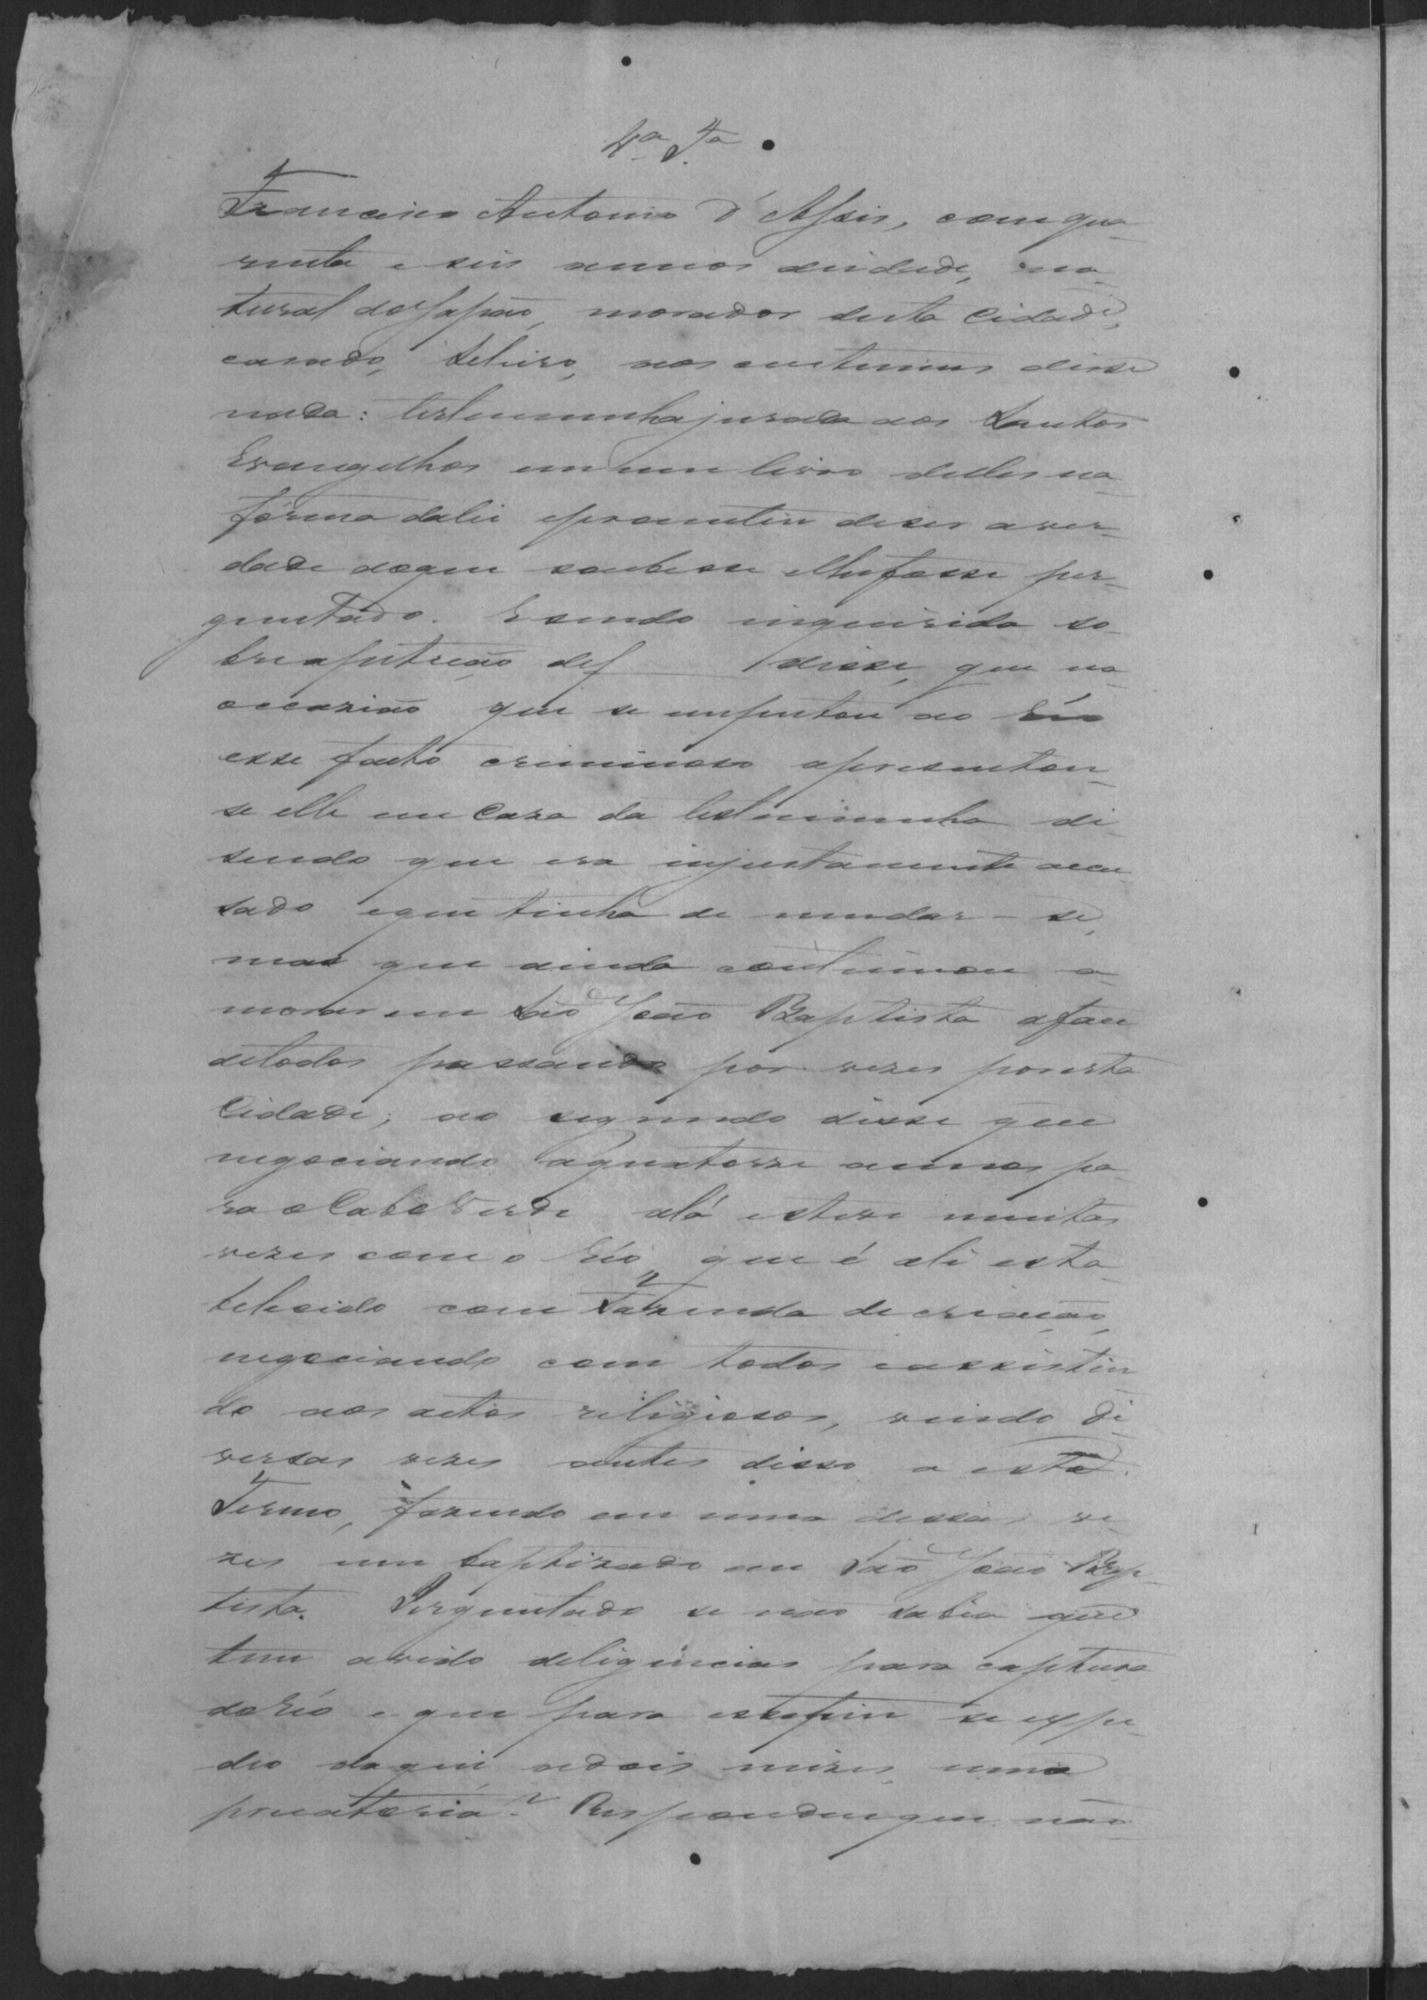 4ª Tª
Francisco Antonio d'Assis, com qua-
renta e seis annos deidade, na-
tural do Japão, morador desta Cidade,
casado, selleiro, aos custumes disse
nada: testemunha jurada aos Santos
Evangelhos em um livro delles na
fórma dalei eprometteu diser a ver-
dade doque soubesse elhefosse per-
guntado. E sendo inquirida so-
bre apetição def disse, que na
occazião que se imputou ao Réo
esse facto criminoso apresentou-
se elle em Caza da testemunha di-
sendo que era injustamente accu-
sado eque tinha de mudar-se,
mas que ainda continuou a
morar em São João Baptista aface
detodos passando por vezes poresta
Cidade; ao segundo disse que
negociando aquatorze annos pa-
ra o Cabo Verde alá esteve muitas
vezes com o Réo, que é ali esta-
belecido com Fazenda de criação,
negociando com todos eassistin
do aos actos religiosos, vindo di-
versas vezes antes disso a este
Termo, fazendo em uma dessas ve-
zes um baptizado em São João Bap-
tista. Perguntado se não sabia que
tem avido deligencias para captura
doréo e que para esse fim se expe-
dio daqui adois mezes uma
precatoria? Respondeu que não